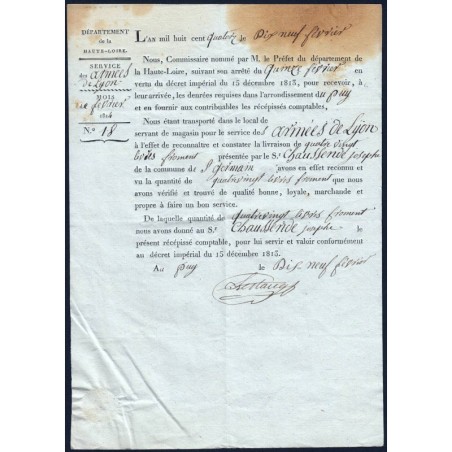 DÉPARTEMENT
de la
HAUTE-LOIRE.
SERVICE
des armées
de Lyon
MOIS
de février
1814
N.° 18
L'AN mil huit cent quatorze le Dix neuf février
Nous, Commissaire nommé par M. le Préfet du département de
la Haute-Loire, suivant son arrêté du quinze février en
vertu du décret impérial du 15 décembre 1813, pour recevoir, à
leur arrivée, les denrées requises dans l'arrondissement du puy
et en fournir aux contribuables les récépissés comptables,
Nous étant transporté dans le local de
servant de magasin pour le service des armées de Lyon
à l'effet de reconnaître et constater la livraison de quatre vingt
froment présentée par le S.r Chaussende joseph
de la commune de St germain avons en effet reconnu et
vu la quantité de quatrevingt froment que nous
avons vérifié et trouvé de qualité bonne, loyale, marchande et
propre à faire un bon service.
De laquelle quantité de quatrevingt froment
nous avons donné au S.r Chaussende joseph le
présent récépissé comptable, pour lui servir et valoir conformément
au décret impérial du 15 décembre 1813.
Au puy le Dix neuf février